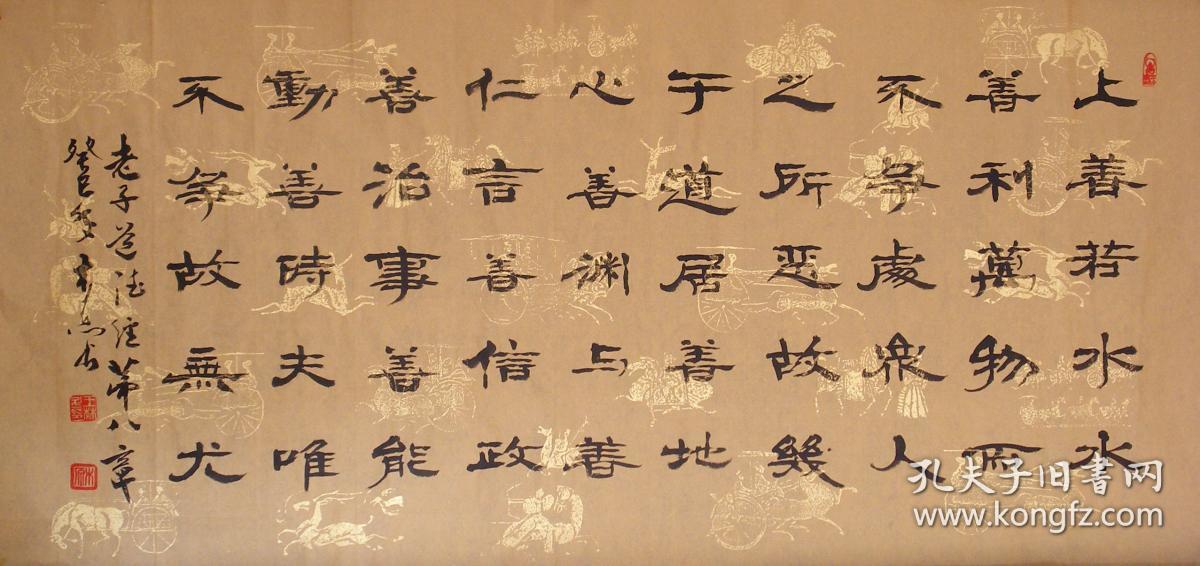 上善若水水
善利萬物而
不爭處眾人
之所惡故幾
于道居善地
心善渊与善
仁言善信政
善治事善能
動善時夫唯
不争故無尤
老子道德經第八章
癸巳
孔夫子旧書网
www.kongfz.com